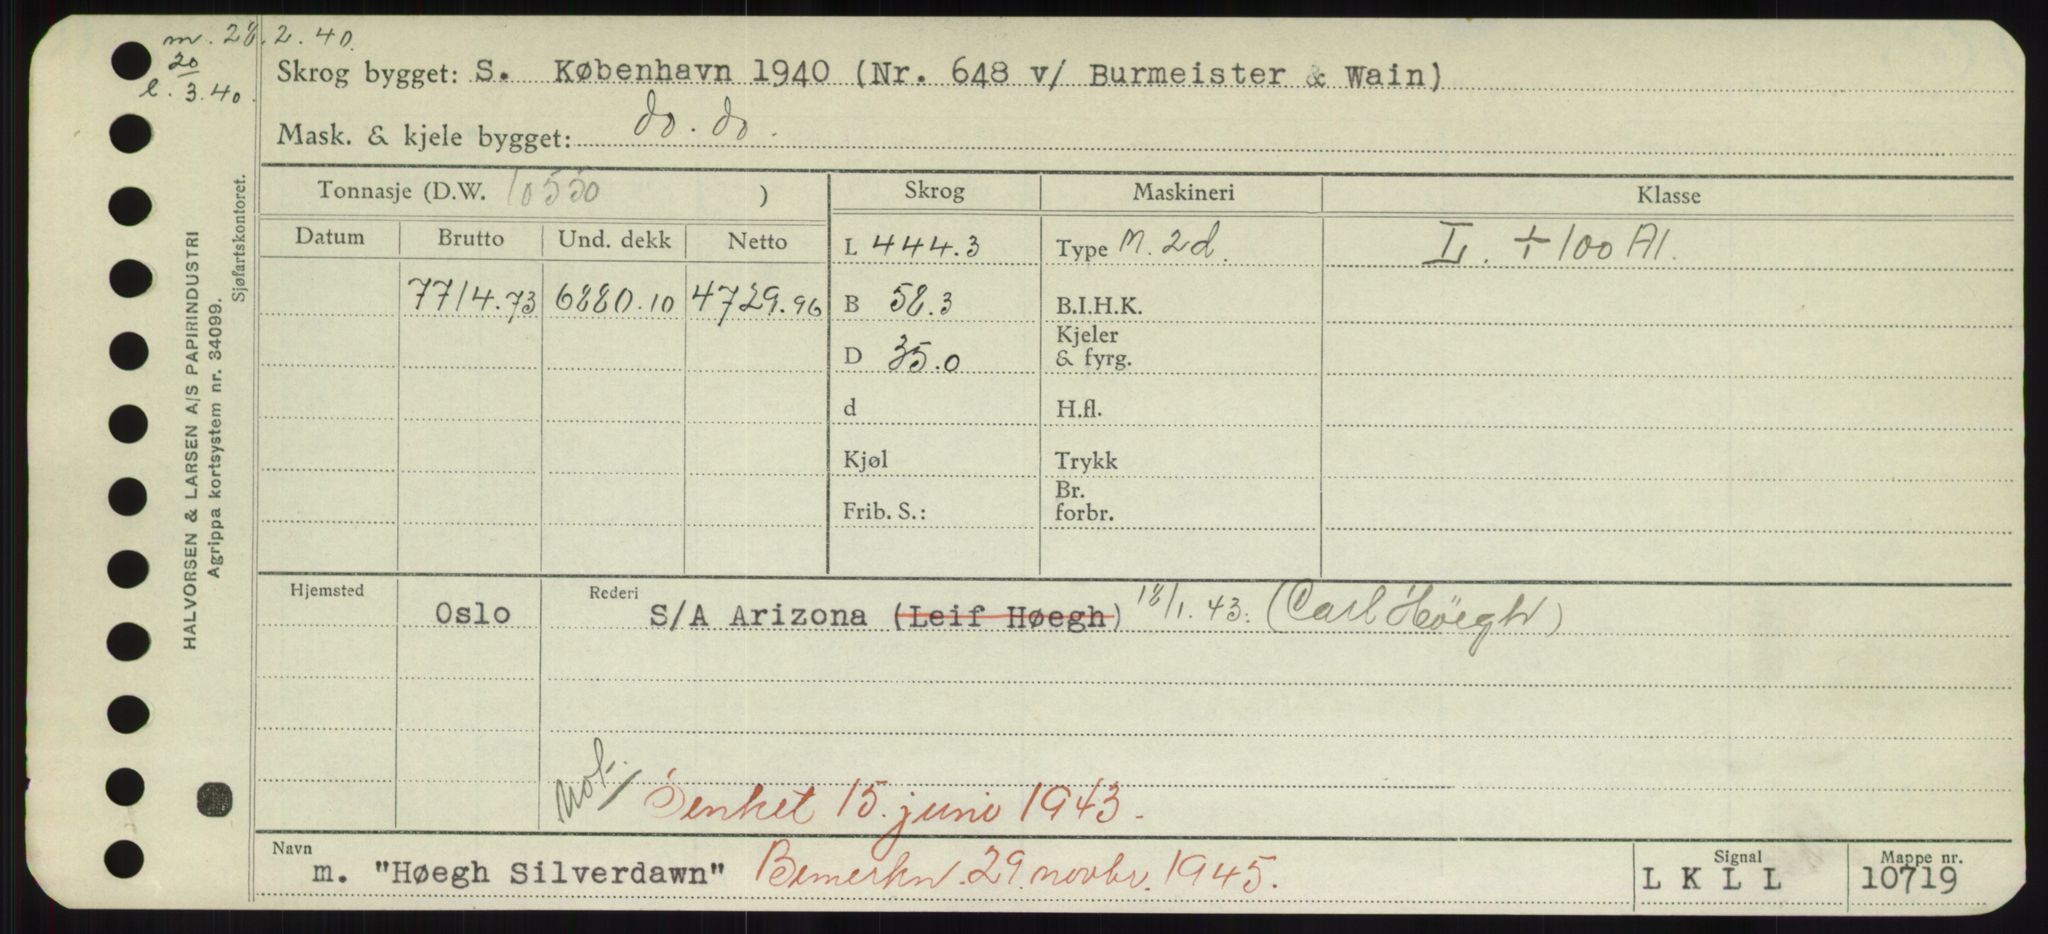 m. 28.2.40.
20
l. 3.40.
Skrog bygget: S. København 1940 (Nr. 648 v/ Burmeister & Wain)
Mask. & kjele bygget: do. do.
Tonnasje (D.W. 10550 )
Skrog Maskineri Klasse
Datum Brutto Und. dekk Netto
L 444.3 Type M. 2d. L. + 100 A1.
7714.73 6880.10 4729.96 B 58.3 B.I.H.K.
D 35.0 Kjeler
& fyrg.
d H.fl.
Kjøl Trykk
Frib. S.: Br.
forbr.
Hjemsted Rederi
Oslo S/A Arizona (Leif Høegh) 18/1.43. (Carl Höegh)
not./ Senket 15. juni 1943.
Navn Signal Mappe nr.
m. "Høegh Silverdawn" Bemerkn. 29. novbr. 1945. L K L L 10719
HALVORSEN & LARSEN A/S PAPIRINDUSTRI
Agrippa kortsystem nr. 34099.
Sjøfartskontoret.